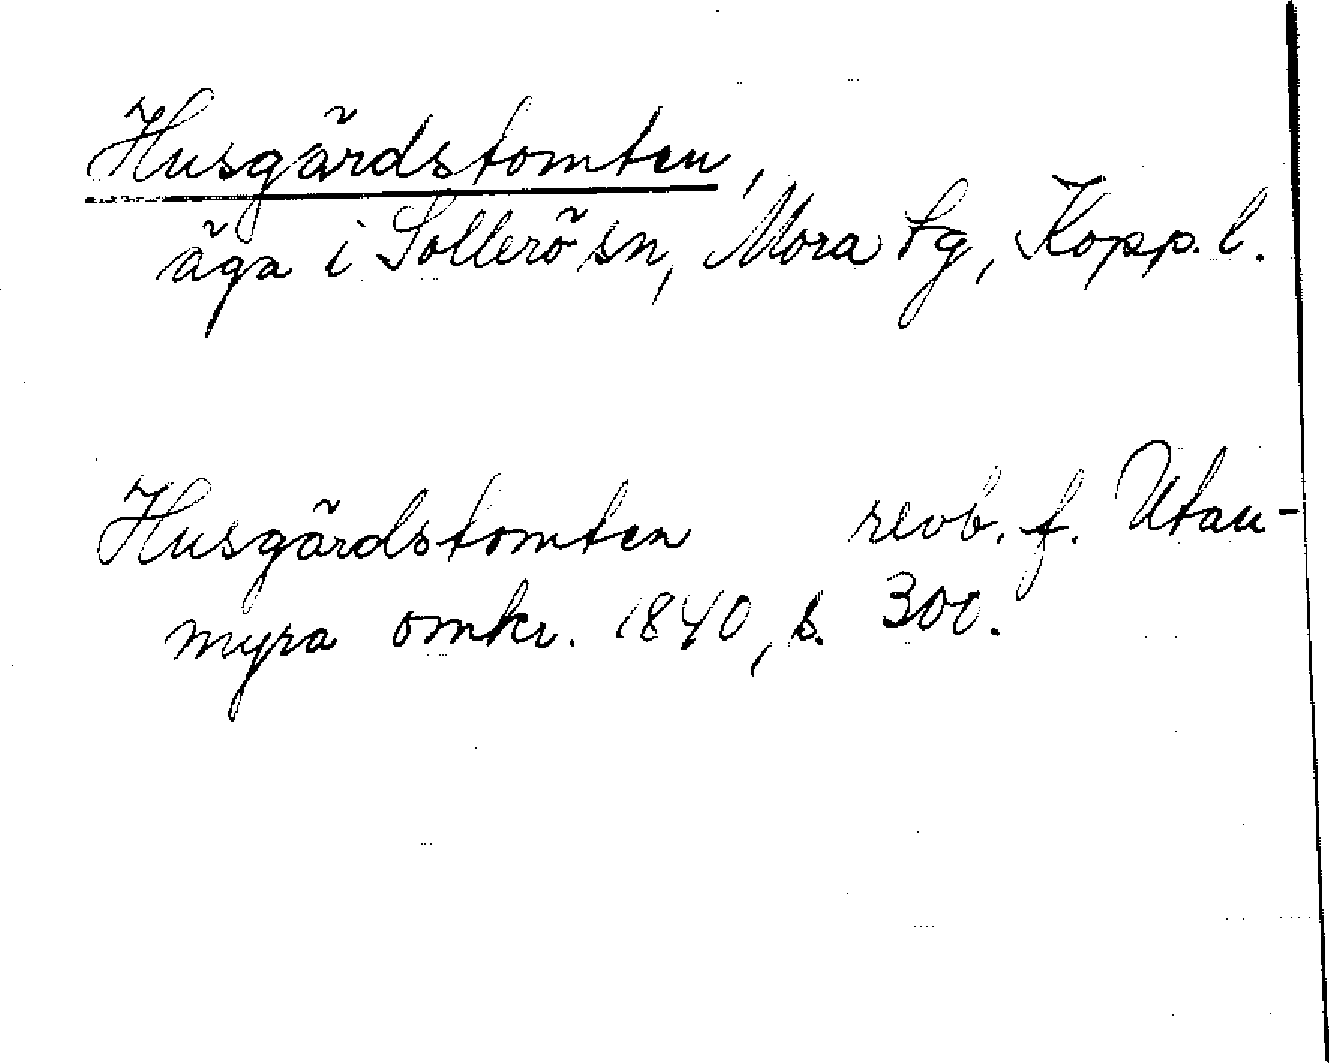 Husgärdstomten,
äga i Sollerö sn, Mora tg, Kopp. l.
Husgärdstomten revb. f. Utan-
myra omkr. 1840, s. 300.